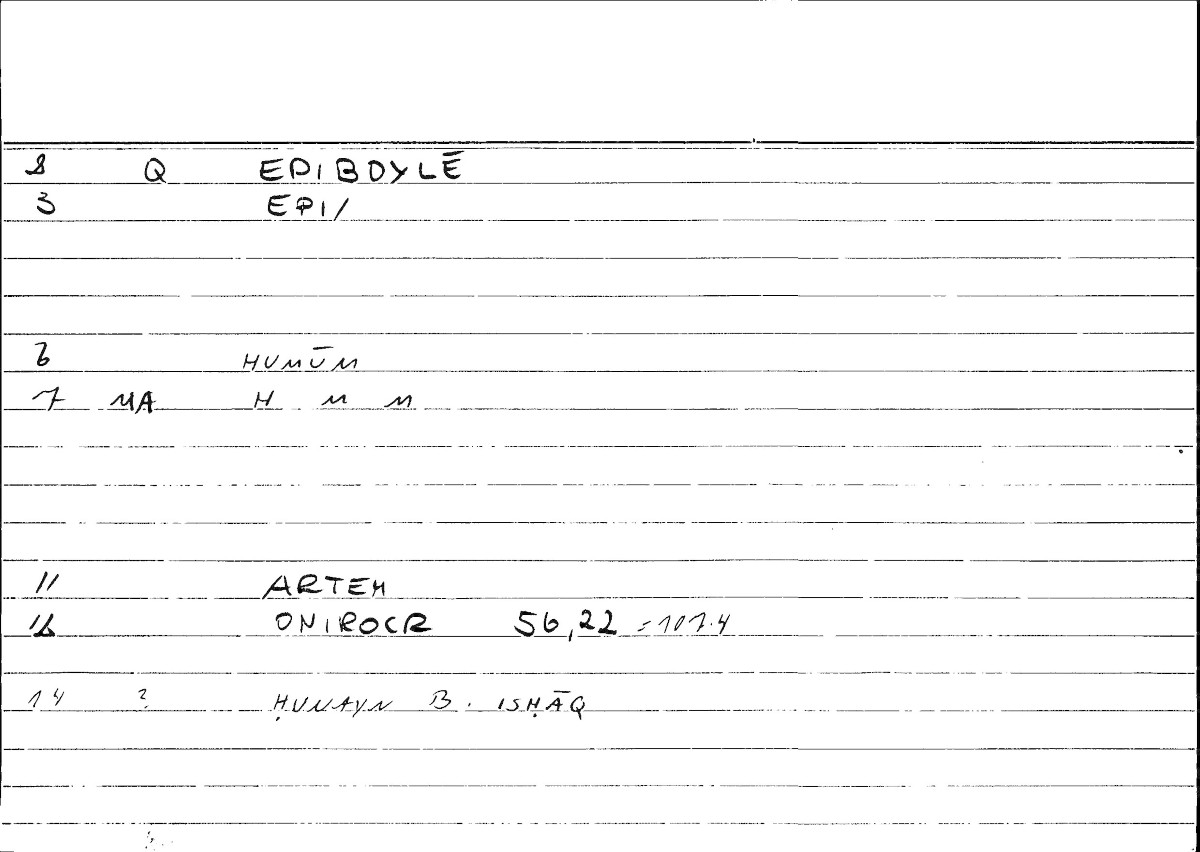 2 Q EPIBOYLĒ
3 EPI/
6 HUMŪM
7 MA H M M
11 ARTEM
12 ONIROCR 56,22 =107.4
14 ? ḤUNAYN B. ISḤĀQ